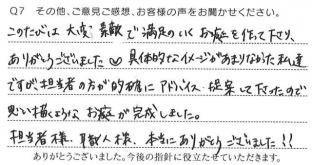 Q7 その他、ご意見ご感想、お客様の声をお聞かせください。
このたびは大変素敵で満足のいくお庭を作って下さり、
ありがとうございました♡ 具体的なイメージがあまりなかった私達
ですが、担当者の方が的確にアドバイス・提案して下さったので
思い描くようなお庭が完成しました。
担当者様、職人様、本当にありがとうございました!!
ありがとうございました。今後の指針に役立たせていただきます。